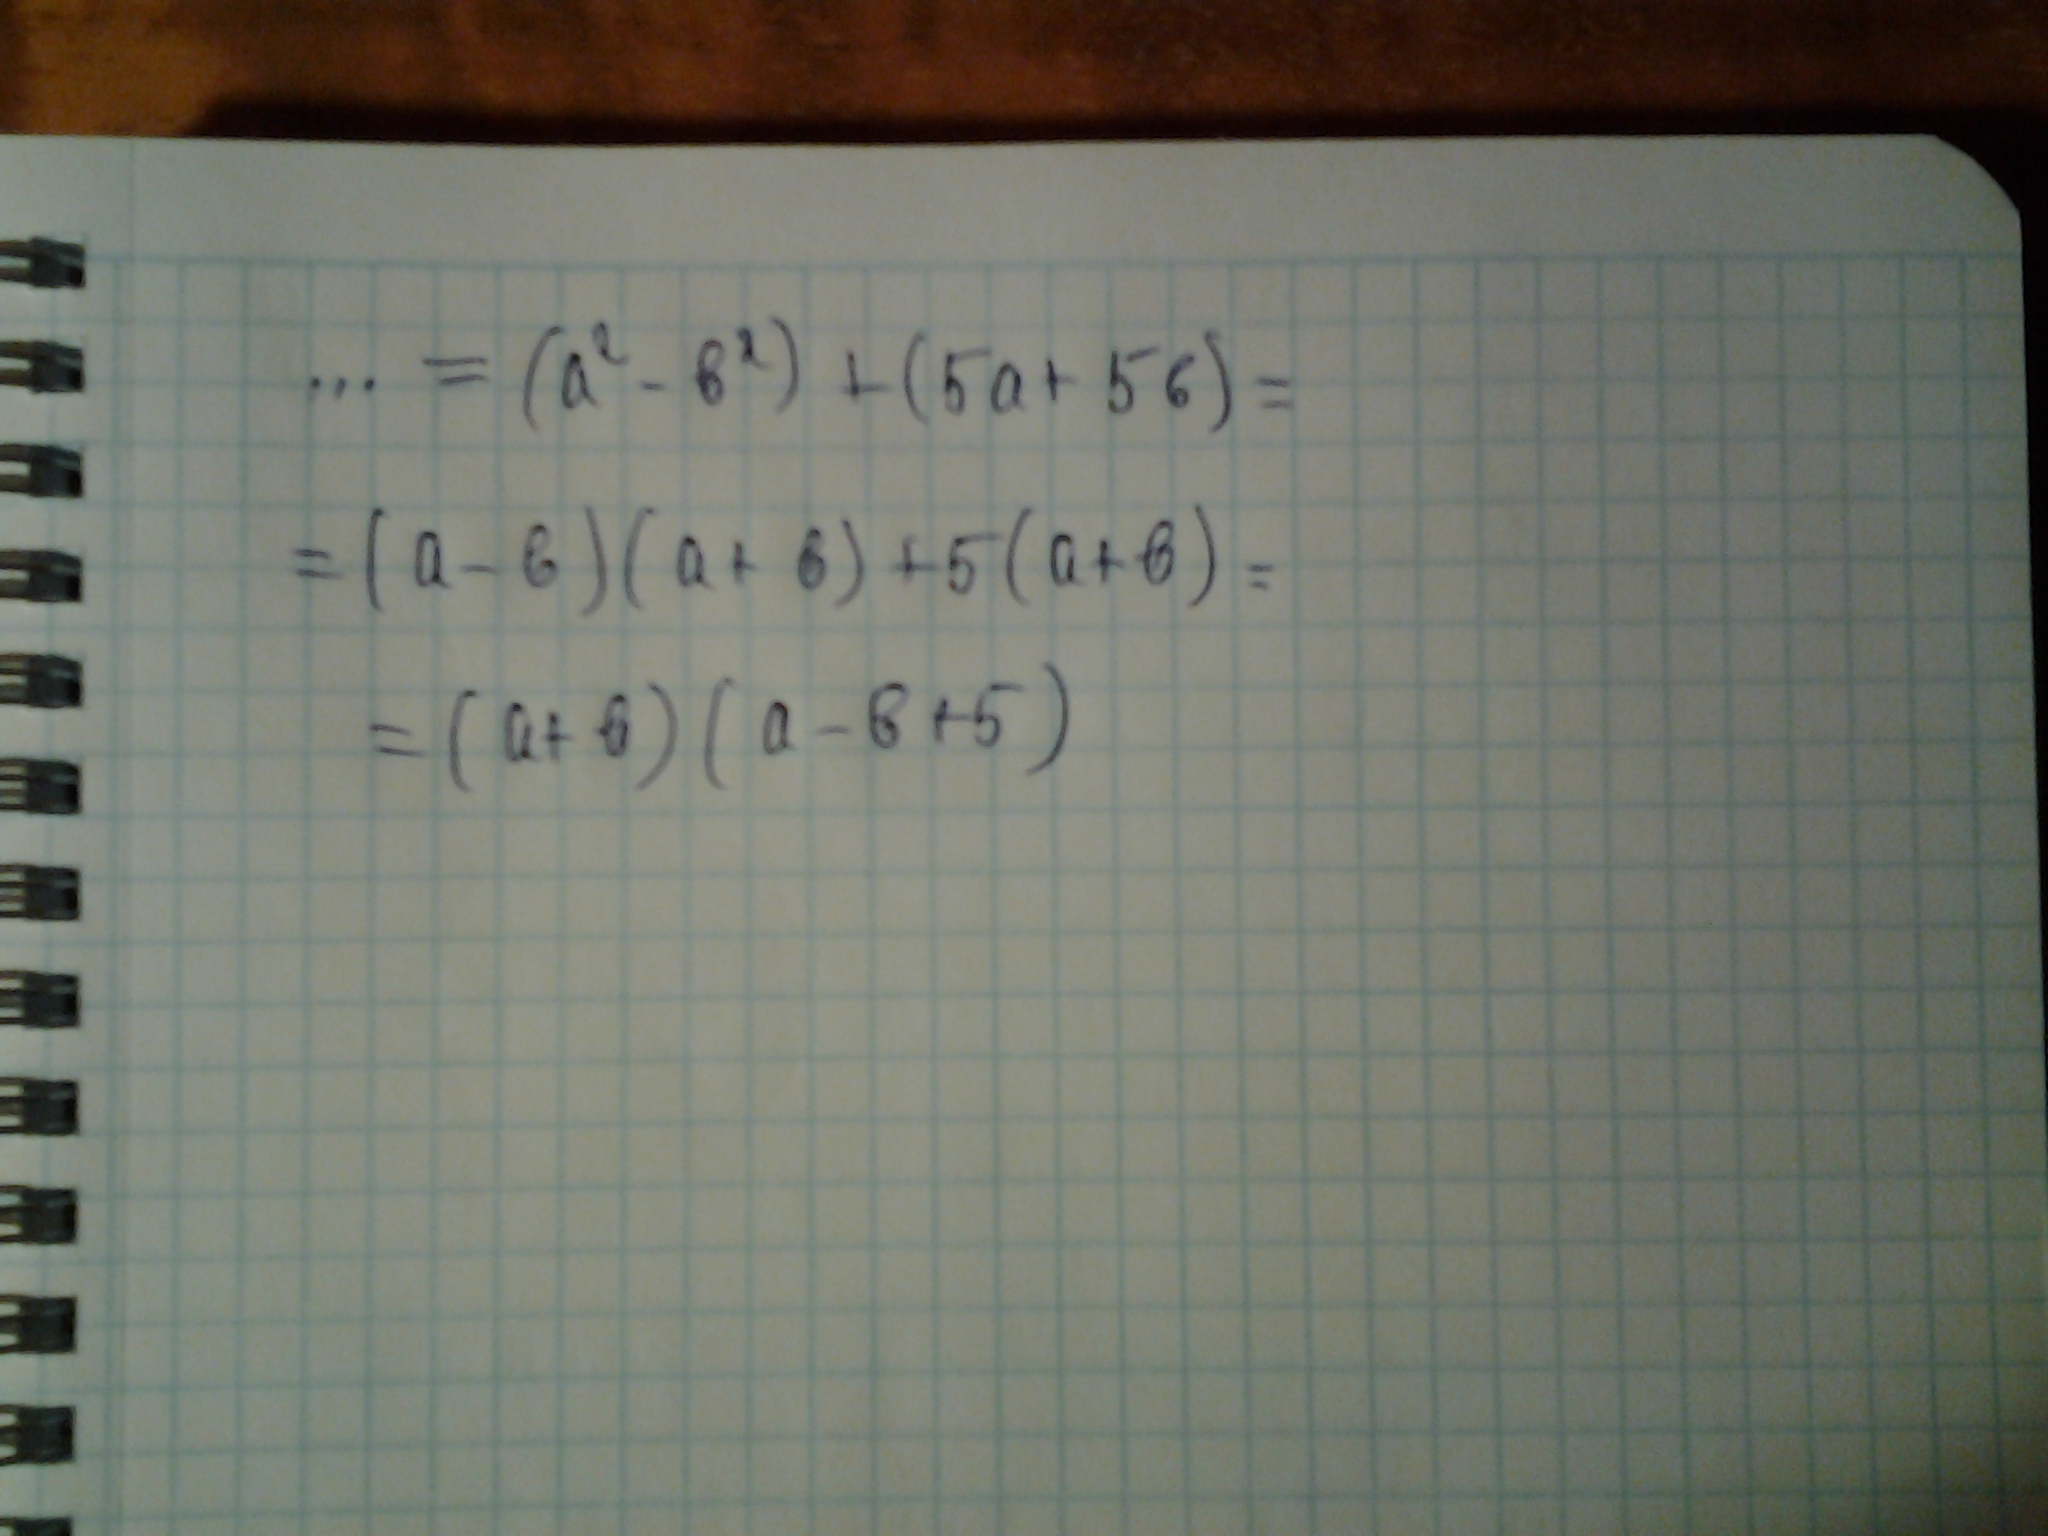 ... = (a² - b²) + (5a + 5b) =
= (a - b)(a + b) + 5(a + b) =
= (a + b)(a - b + 5)